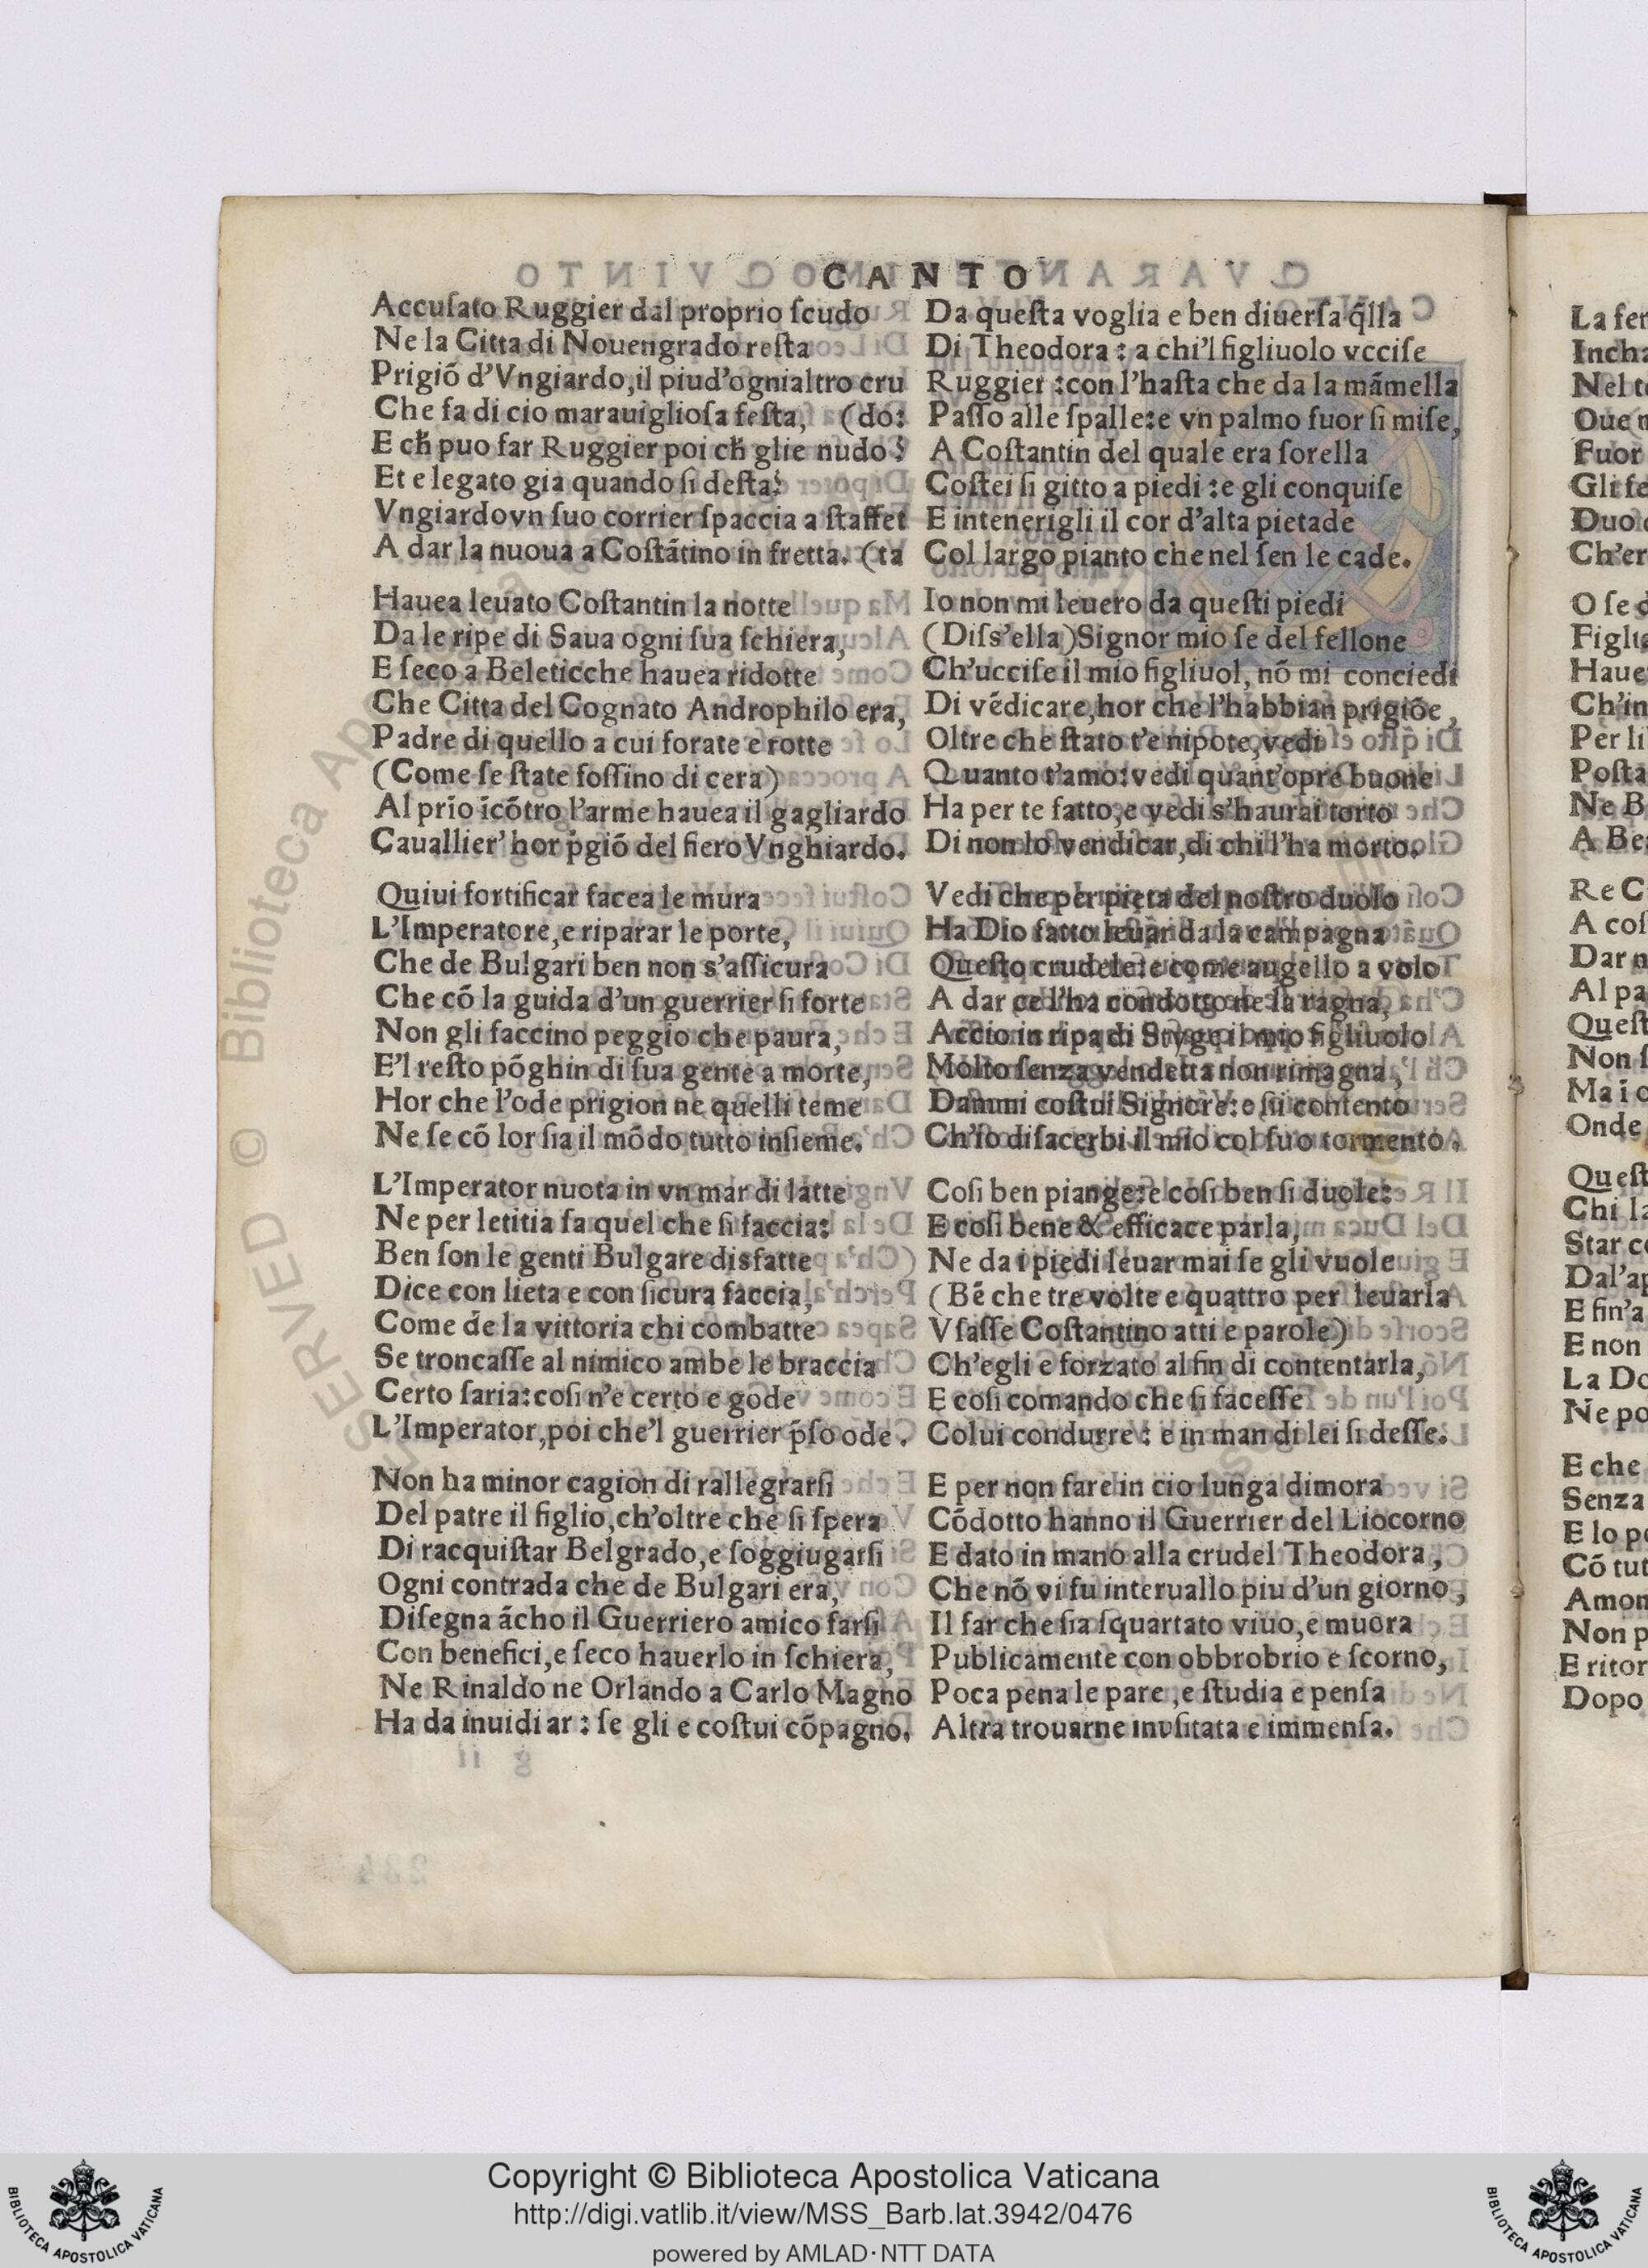 CANTO
Accuſato Ruggier dal proprio ſcudo
Ne la Citta di Nouengrado reſta
Prigiõ d'Vngiardo,il piud'ognialtro cru
Che fa di cio marauiglioſa feſta, (do:
E ch̃ puo far Ruggier poi ch̃ glie nudo?
Et e legato gia quando ſi deſta?
Vngiardovn ſuo corrier ſpaccia a ſtaffet
A dar la nuoua a Coſtãtino in fretta. (ta
Hauea leuato Coſtantin la notte
Da le ripe di Saua ogni ſua ſchiera,
E ſeco a Beleticche hauea ridotte
Che Citta del Cognato Androphilo era,
Padre di quello a cui forate e rotte
(Come ſe ſtate foſſino di cera)
Al prĩo ĩcõtro l'arme hauea il gagliardo
Cauallier' hor p̃giõ del fiero Vnghiardo.
Quiui fortificar facea le mura
L'Imperatore,e riparar le porte,
Che de Bulgari ben non s'aſſicura
Che cõ la guida d'un guerrier ſi forte
Non gli faccino peggio che paura,
E'l reſto põghin di ſua gente a morte,
Hor che l'ode prigion ne quelli teme
Ne ſe cõ lor ſia il mõdo tutto inſieme.
L'Imperator nuota in vn mar di latte
Ne per letitia ſa quel che ſi faccia:
Ben ſon le genti Bulgare disfatte
Dice con lieta e con ſicura faccia,
Come de la vittoria chi combatte
Se troncaſſe al nimico ambe le braccia
Certo ſaria:coſi n'e certo e gode
L'Imperator,poi che'l guerrier p̃ſo ode.
Non ha minor cagion di rallegrarſi
Del patre il figlio,ch'oltre che ſi ſpera
Di racquiſtar Belgrado,e ſoggiugarſi
Ogni contrada che de Bulgari era,
Diſegna ãcho il Guerriero amico farſi
Con benefici,e ſeco hauerlo in ſchiera,
Ne Rinaldo ne Orlando a Carlo Magno
Ha da inuidiar: ſe gli e coſtui cõpagno.
Da queſta voglia e ben diuerſa q̃lla
Di Theodora: a chi'l figliuolo vcciſe
Ruggier:con l'haſta che da la mãmella
Paſſo alle ſpalle:e vn palmo fuor ſi miſe,
A Coſtantin del quale era ſorella
Coſtei ſi gitto a piedi:e gli conquiſe
E intenerigli il cor d'alta pietade
Col largo pianto che nel ſen le cade.
Io non mi leuero da queſti piedi
(Diſs'ella)Signor mio ſe del fellone
Ch'ucciſe il mio figliuol, nõ mi conciedi
Di vẽdicare,hor che l'habbian prigiõe,
Oltre che ſtato t'e nipote,vedi
Quanto t'amo:vedi quant'opre buone
Ha per te fatto,e vedi s'haurai torto
Di non lo vendicar,di chi l'ha morto.
Vedi che per pieta del noſtro duolo
Ha Dio fatto leuar da la campagna
Queſto crudele:e come augello a volo
A dar ce l'ha condotto ne la ragna,
Accio in ripa di Styge il mio figliuolo
Molto ſenza vendetta non rimagna,
Dammi coſtui Signore:e ſii contento
Ch'io diſacerbi il mio col ſuo tormento.
Coſi ben piange:e coſi ben ſi duole:
E coſi bene & efficace parla,
Ne da i piedi leuar mai ſe gli vuole
(Bẽ che tre volte e quattro per leuarla
Vſaſſe Coſtantino atti e parole)
Ch'egli e forzato al fin di contentarla,
E coſi comando che ſi faceſſe
Colui condurre: e in man di lei ſi deſſe.
E per non fare in cio lunga dimora
Cõdotto hanno il Guerrier del Liocorno
E dato in mano alla crudel Theodora,
Che nõ vi fu interuallo piu d'un giorno,
Il far che ſia ſquartato viuo,e muora
Publicamente con obbrobrio e ſcorno,
Poca pena le pare,e ſtudia e penſa
Altra trouarne inuſitata e immenſa.
La fer
Incha
Nel te
Oue n
Fuor
Gli ſe
Duo
Ch'er
O ſe
Figlia
Haue
Ch'in
Per li
Poſta
Ne B
A Be
Re C
A coſ
Dar n
Al pa
Queſt
Non ſ
Ma i
Onde
Queſt
Chi la
Star c
Dal'ap
E fin'a
E non
La Do
Ne po
E che
Senza
E lo p
Cõ tut
Amon
Non p
E ritor
Dopo
© Biblioteca
Copyright © Biblioteca Apostolica Vaticana
http://digi.vatlib.it/view/MSS_Barb.lat.3942/0476
powered by AMLAD·NTT DATA
BIBLIOTECA APOSTOLICA VATICANA
BIBLIOTECA APOSTOLICA VATICANA